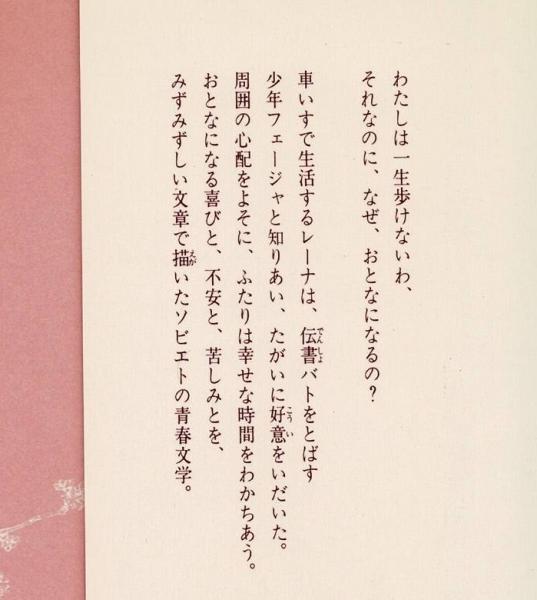 わたしは一生歩けないわ、
それなのに、なぜ、おとなになるの？
車いすで生活するレーナは、伝書バトをとばす
少年フェージャと知りあい、たがいに好意をいだいた。
周囲の心配をよそに、ふたりは幸せな時間をわかちあう。
おとなになる喜びと、不安と、苦しみとを、
みずみずしい文章で描いたソビエトの青春文学。